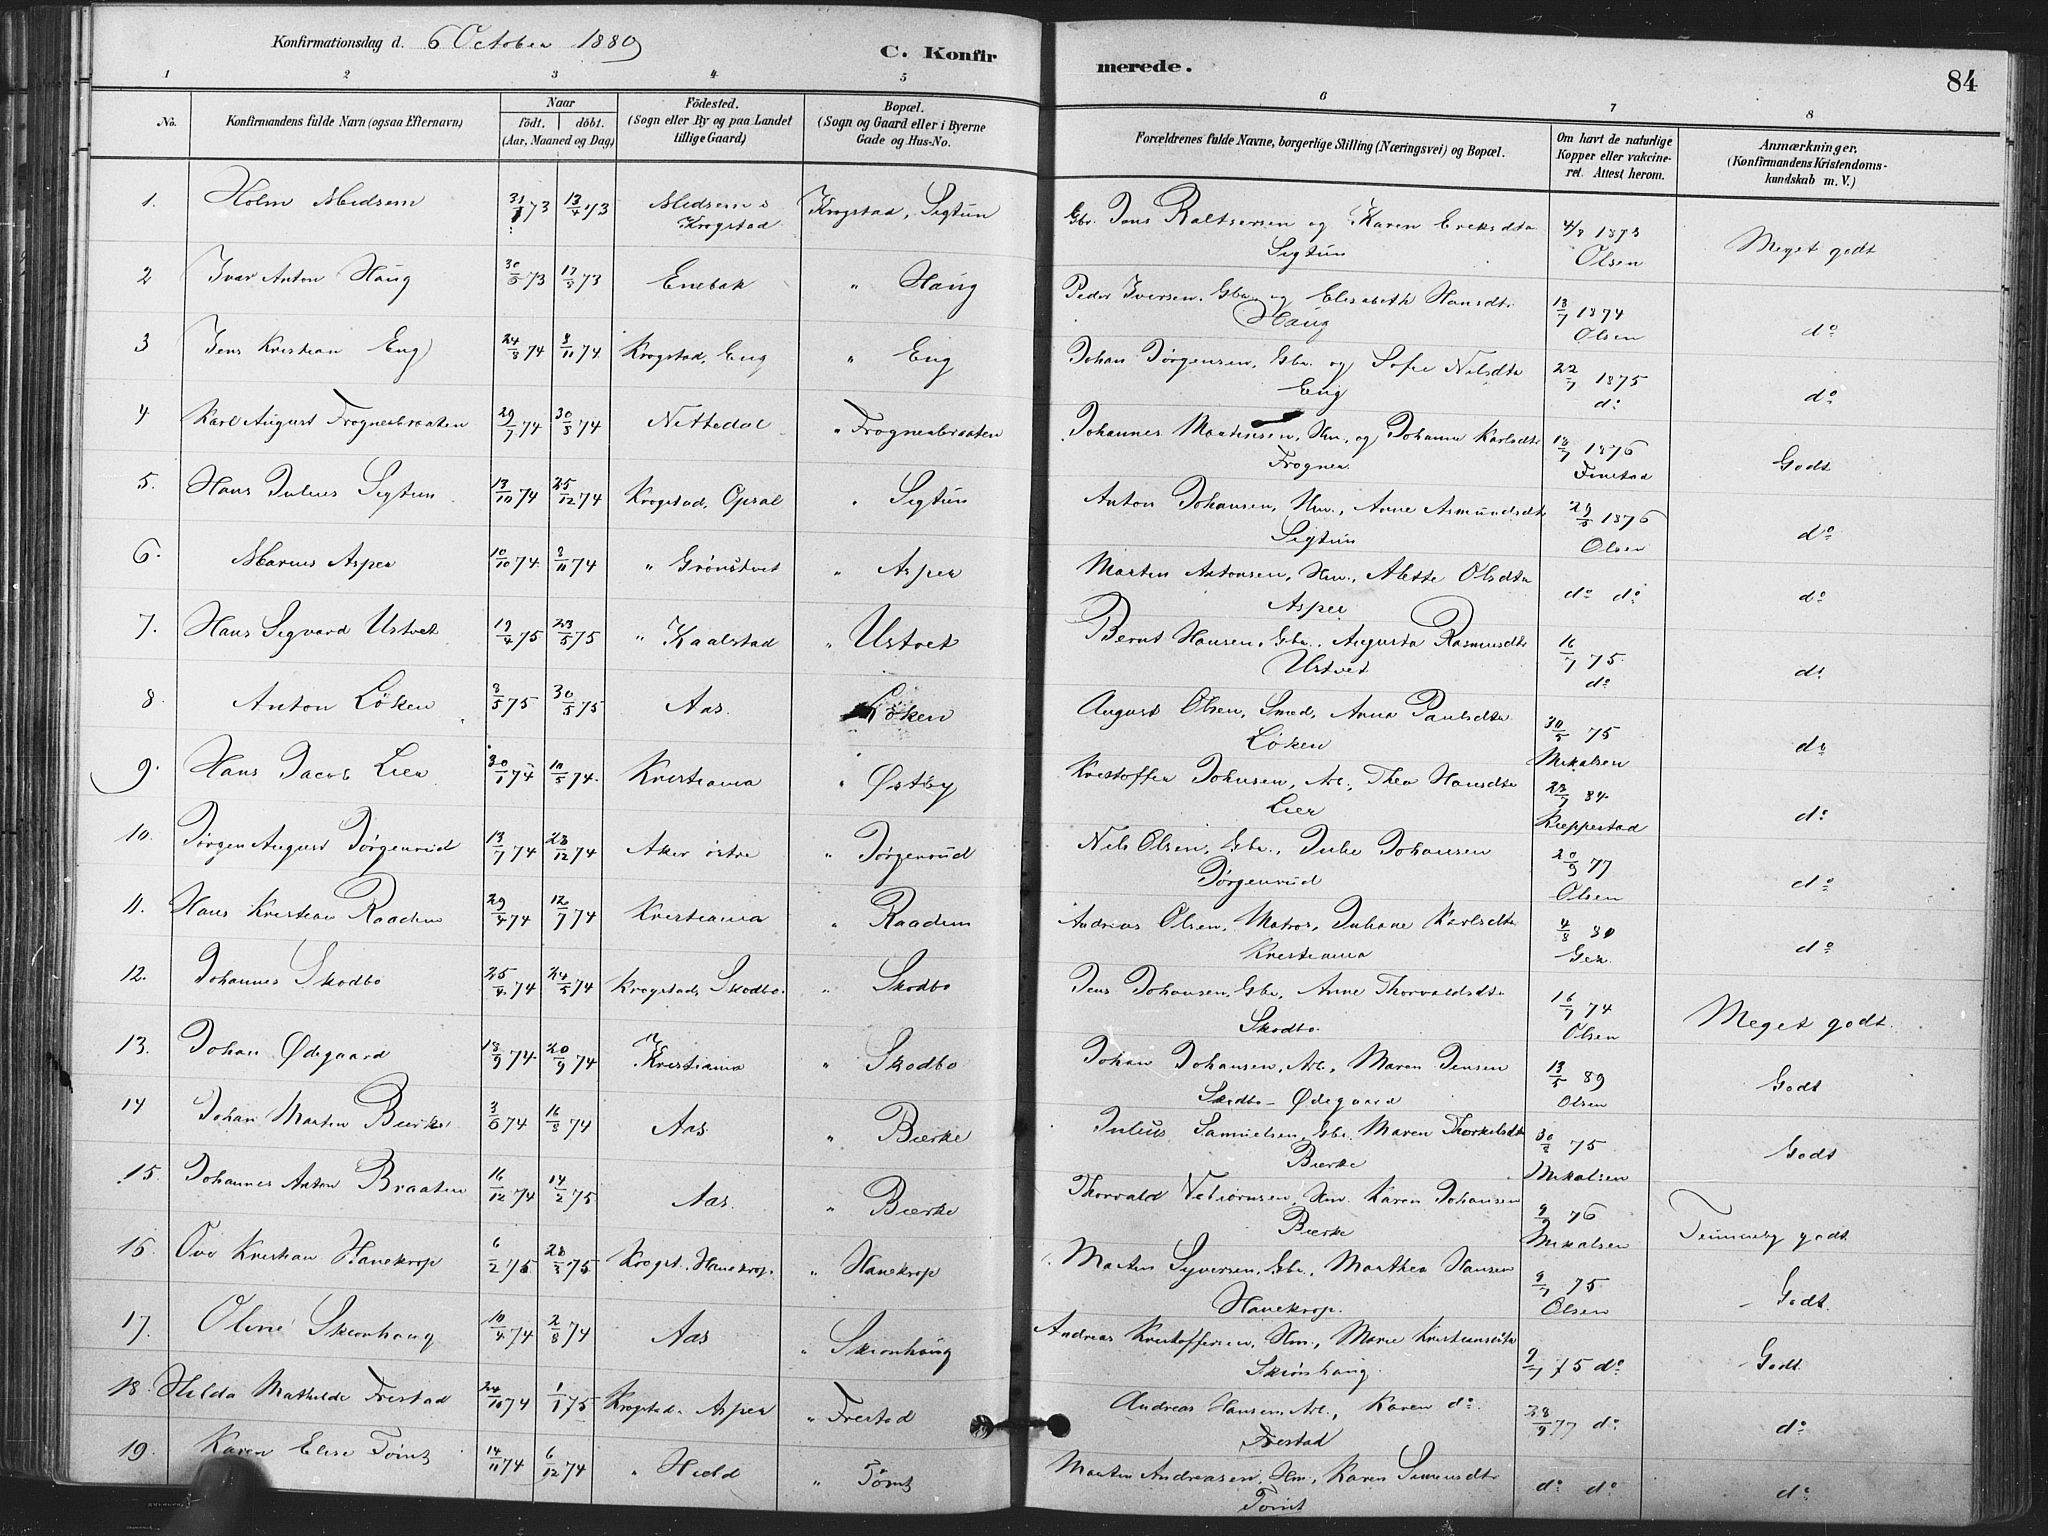 Konfirmationsdag d. 6 October 1889
C. Konfirmerede.
84
1 2 3 4 5 6 7 8
No.
Konfirmandens fulde Navn (ogsaa Efternavn)
Naar
födt. döbt.
(Aar, Maaned og Dag)
Födested.
(Sogn eller By og paa Landet
tillige Gaard)
Bopæl.
(Sogn og Gaard eller i Byerne
Gade og Hus-No.
Forældrenes fulde Navne, borgerlige Stilling (Næringsvei) og Bopæl.
Om havt de naturlige
Kopper eller vakcine-
ret. Attest herom.
Anmærkninger.
(Konfirmandens Kristendoms-
kundskab m. V.)
1. Holm Midsem 73 13/4 73 Midsem i Krogstad Krogstad, Sigtun Gbr. Jens og Karen Eriksdtr Sigtun 4/8 1873 Olsen Meget godt
2 Ivar Anton Haug 73 73 Enebak " Haug Peder Iversen, Gbr. og Elisabeth Hansdtr Haug 13/7 1874 Olsen do
3 Jens Kristian Eng 24/8 74 8/11 74 Krogstad, Eng " Eng Johan Jørgensen, Gbr. og Sofie Nilsdtr Eng 22/7 1875 do do
4 Karl August Frognerbraaten 29/7 74 30/8 74 Nittedal " Frognerbraaten Johannes Martinsen, Hm. og Johanne Karlsdtr Frogner 18/7 1876 Finstad Godt
5. Hans Julius Sigtun 13/10 74 25/12 74 Krogstad, Opsal " Sigtun Anton Johansen, Hm., Anne Asmundsdtr Sigtun 29/5 1876 Olsen do
6. Marius Asper 10/10 74 8/11 74 " Grønstvet " Asper Martin Antonsen, Hm., Alette Olsdtr Asper do do do
7. Hans Sigvard Ustvet 19/4 75 23/5 75 " Kaalstad " Ustvet Bernt Hansen, Gbr., Augusta Rasmusdtr Ustvet 16/7 75. do do
8. Anton Løken 8/5 75 30/5 75 Aas. Løken August Olsen, Smed, Anna Paulsdtr Løken 30/5 75 Mikalsen do
9. Hans Jacob Lier 30/1 74 10/5 74. Kristiania " Østby Kristoffer Johnsen, Arb., Thea Hansdtr Lier 23/7 84. Kieppestad do
10. Jørgen August Jørgenrud 13/7 74 28/12 74 Aker østre " Jørgenrud Nils Olsen, Gbr., Julie Johansen Jørgenrud 20/9 77 Olsen do
11. Hans Kristian Raadim 29/4 74 12/7 74 Kristiania " Raadim Andreas Olsen, Matros, Juliane Karlsdtr Kristiania 4/8 80 do
12. Johannes Skodbo 25/4 74 24/5 74 Krogstad, Skodbo. " Skodbo Jens Johansen, Gbr., Anne Thorvaldsdtr Skodbo. 16/7 74 Olsen Meget godt.
13. Johan Ødegaard 18/9 74 20/9 74 Kristiania " Skodbo Johan Johansen, Arb., Maren Jensen Skodbo - Ødegaard 13/5 89 Olsen Godt
14 Johan Martin Bierke 3/6 74 16/8 74 Aas " Bierke Julius Samuelsen, Gbr. Maren Thorkelsdtr Bierke 75 Mikalsen Godt
15. Johannes Anton Braaten 16/12 74 14/2 75 Aas. " Bierke Thorvald Hm. Karen Johansen Bierke 76 Mikalsen Temmelig godt
16. Ove Kristian Hanekrop 6/2 75 28/3 75 Krogst., Hanekrop. " Hanekrop Martin Syversen, Gbr., Marthea Hansen Hanekrop. 9/7 75 Olsen Godt.
17. Oline Skionhaug 10/4 74 2/8 74 Aas " Skionhaug Andreas Kristoffersen, Hm., Marie Kristiansdtr Skiønhaug. 9/7 75 do Godt.
18. Hilda Mathilde Frestad 24/10 74 1/1 75 Krogstad, Asper " Frestad Andreas Hansen, Arb., Karen do Frestad 28/9 77 do do
19. Karen Elise Tomt 14/11 74 6/12 74 " Hield " Tomt Martin Andreasen, Hm., Karen Simensdtr Tomt do do do